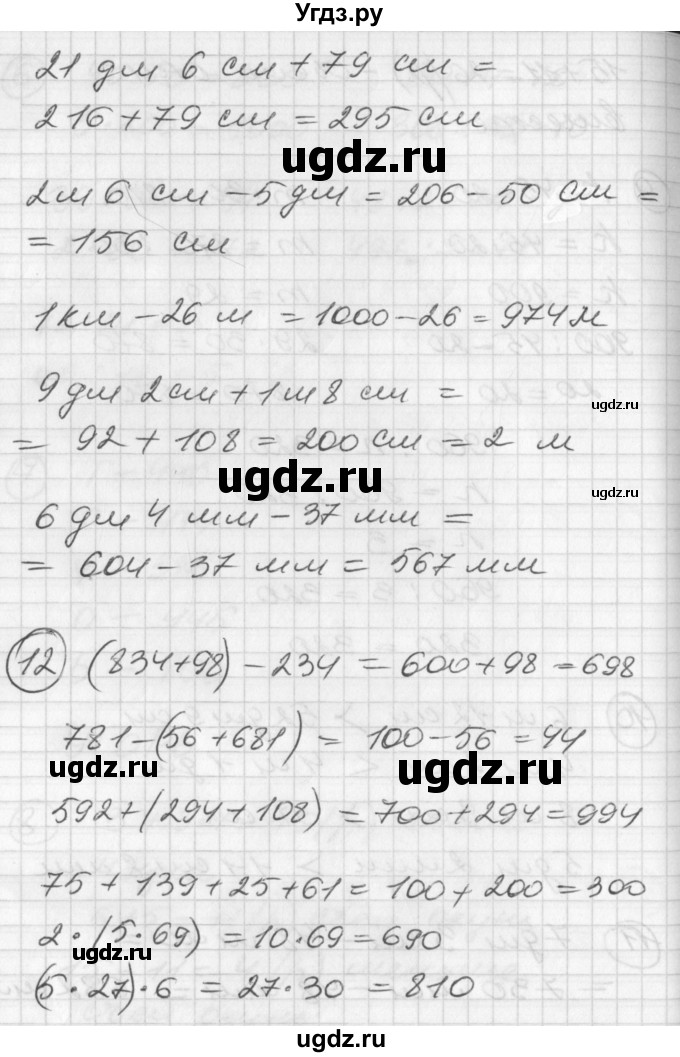 Угдз.ру
21 дм 6 см + 79 см =
216 + 79 см = 295 см
ugdz.ru
2м 6 см - 5 дм = 206 - 50 см =
= 156 см
ugdz.ru
1 км - 26 м = 1000 - 26 = 974 м
9 дм 2 см + 1 м 8 см =
ugdz.ru
= 92 + 108 = 200 см = 2 м
ugdz.ru
6 дм 4 мм - 37 мм =
ugdz.ru
= 604 - 37 мм = 567 мм
12 (834+98) - 234 = 600 + 98 = 698
781 - (56 + 681) = 100 - 56 = 44
ugdz.ru
ugdz.ru
592 + (294 + 108) = 700 + 294 = 994
75 + 139 + 25 + 61 = 100 + 200 = 300
2 · (5 · 69) = 10 · 69 = 690
ugdz.ru
ugdz.ru
(5 · 27) · 6 = 27 · 30 = 810
ugdz.ru